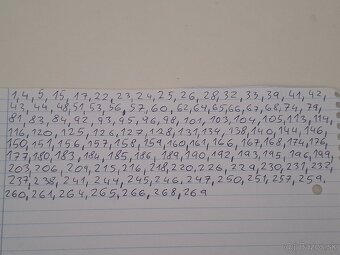 1,4,5,15,17,22,23,24,25,26,28,32,33,39,41,42,
43,44,48,51,53,56,57,60,62,64,65,66,67,68,74,79,
81,83,84,92,93,95,96,98,101,103,104,105,113,114,
116,120,125,126,127,128,131,134,138,140,144,146,
150,151,156,157,158,159,160,161,166,167,168,174,176,
177,180,183,184,185,186,189,190,192,193,195,196,199,
203,206,209,215,216,218,220,226,229,230,231,232,
237,238,241,244,245,246,247,250,251,257,259,
260,261,264,265,266,268,269